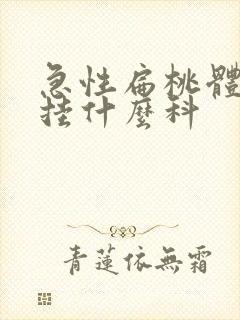 急性扁桃體
挂什麼科
青蓮依無霜